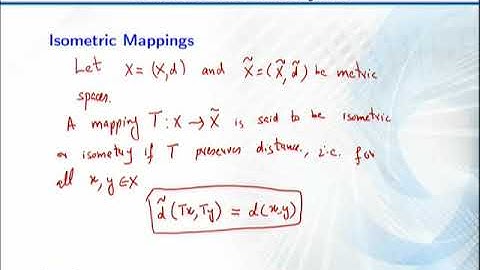 Isometric Mappings
Let X = (X,d) and X̃ = (X̃, d̃) be metric
spaces.
A mapping T : X → X̃ is said to be isometric
or isometry if T preserves distance, i.e. for
all x, y ∈ X
d̃ (Tx, Ty) = d(x,y)